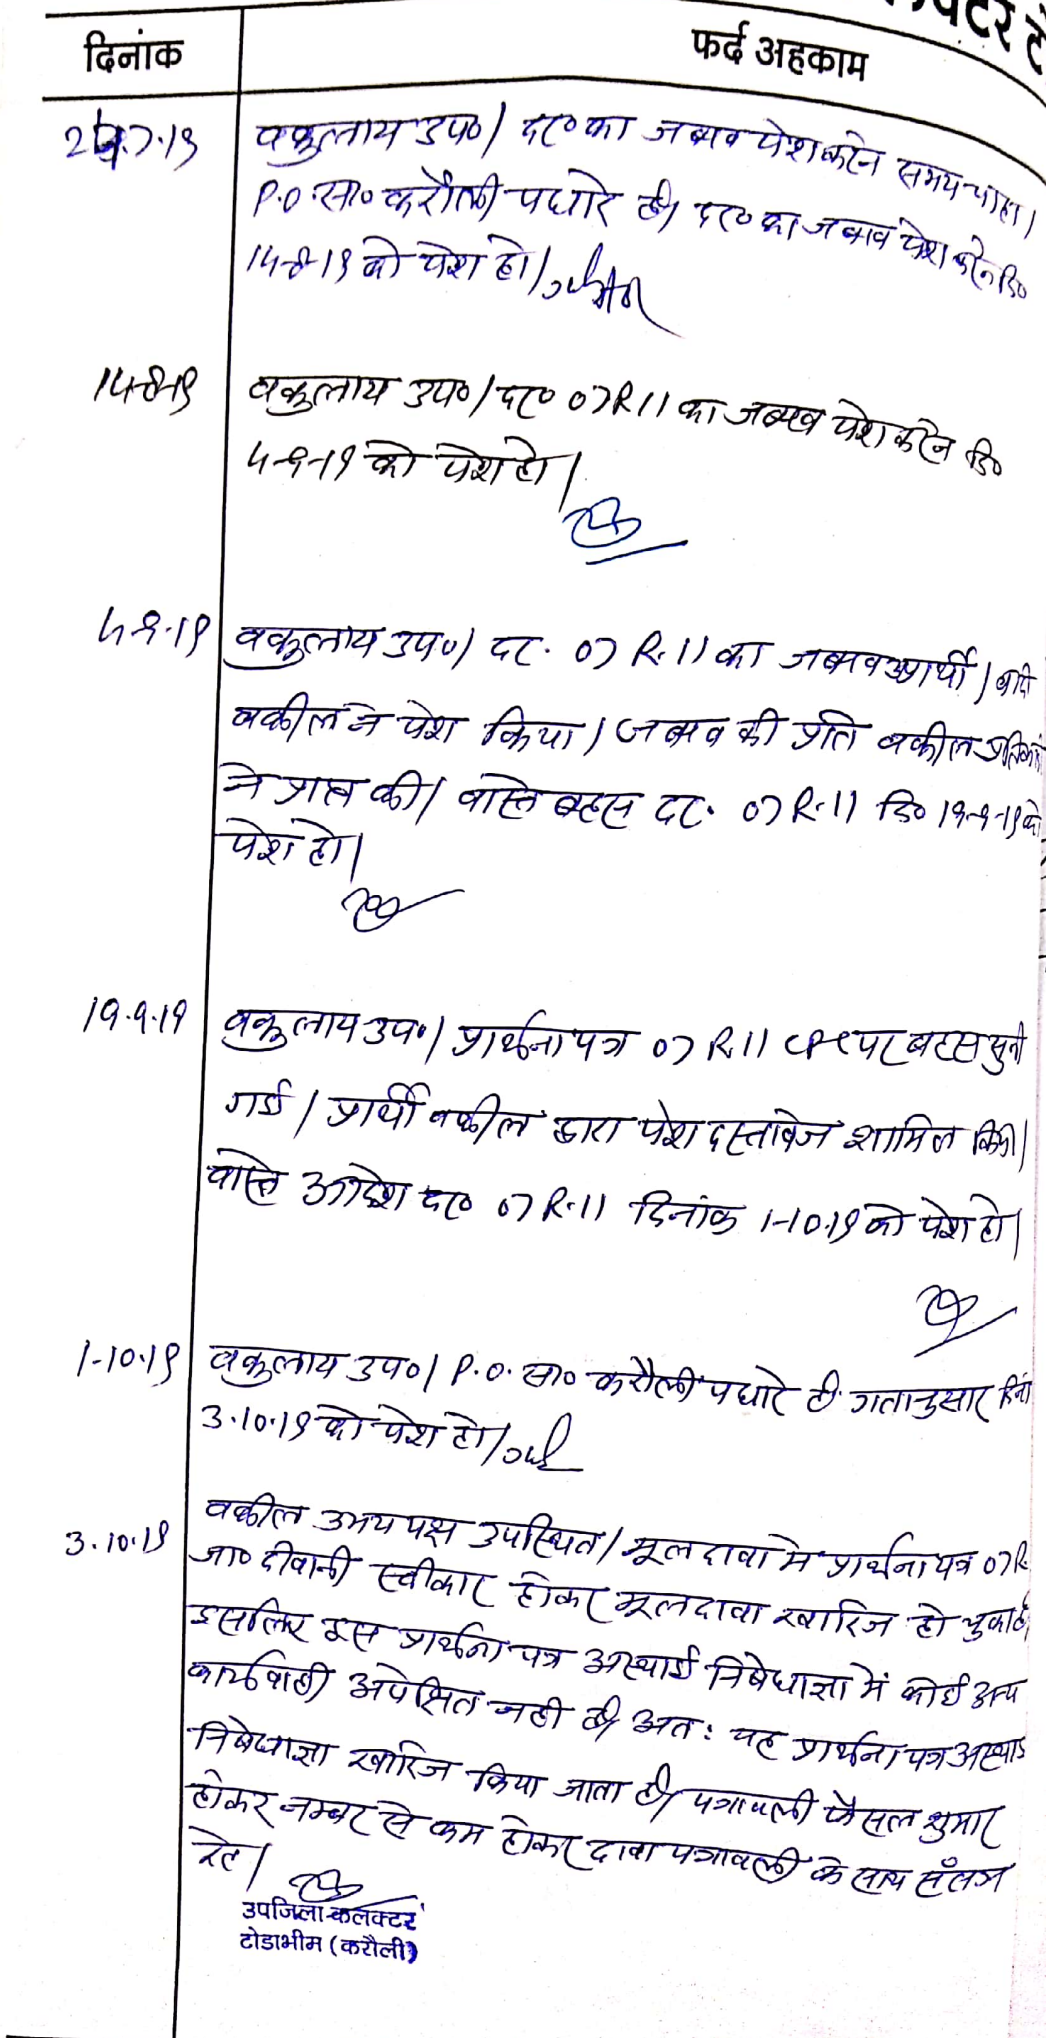 दिनांक
फर्द अहकाम
वकुलाय उप०/ दर० का जबाव पेश करने समय चाहा।
P.O. सा० करौली पधारे है। दर० का जबाव पेश करने दि०
14-8-19 को पेश हो।
14-8-19
वकुलाय उप०/ दर० 07R11 का जबाव पेश करने दि०
4-9-19 को पेश हो।
4-9-19
वकुलाय उप०/ दर. 07 R.11 का जबाव अप्रार्थी/ वादी
वकील ने पेश किया/ जबाव की प्रति वकील
ने प्राप्त की/ वास्ते बहस दर. 07 R.11 दि० 19-9-19 को
पेश हो।
19.9.19
वकुलाय उप०/ प्रार्थना पत्र 07 R.11 CPC पर बहस सुनी
गई/ प्रार्थी वकील द्वारा पेश दस्तावेज शामिल
वास्ते आदेश दर० 07 R.11 दिनांक 1-10.19 को पेश हो।
1-10.19
वकुलाय उप०/ P.O. सा० करौली पधारे है गतानुसार
3.10.19 को पेश हो।
3.10.19
वकील उभय पक्ष उपस्थित/ मूल दावा मे प्रार्थना पत्र 07R
जा० दीवानी स्वीकार होकर मूल दावा खारिज हो चुका है
इसलिए इस प्रार्थना पत्र अस्थाई निषेधाज्ञा में कोई अन्य
कार्यवाही अपेक्षित नही है। अत: यह प्रार्थना पत्र अस्थाई
निषेधाज्ञा खारिज किया जाता है। पत्रावली फैसल शुमार
होकर नम्बर से कम होकर दावा पत्रावली के साथ संलग्न
रहे।
उपजिला कलक्टर
टोडाभीम (करौली)